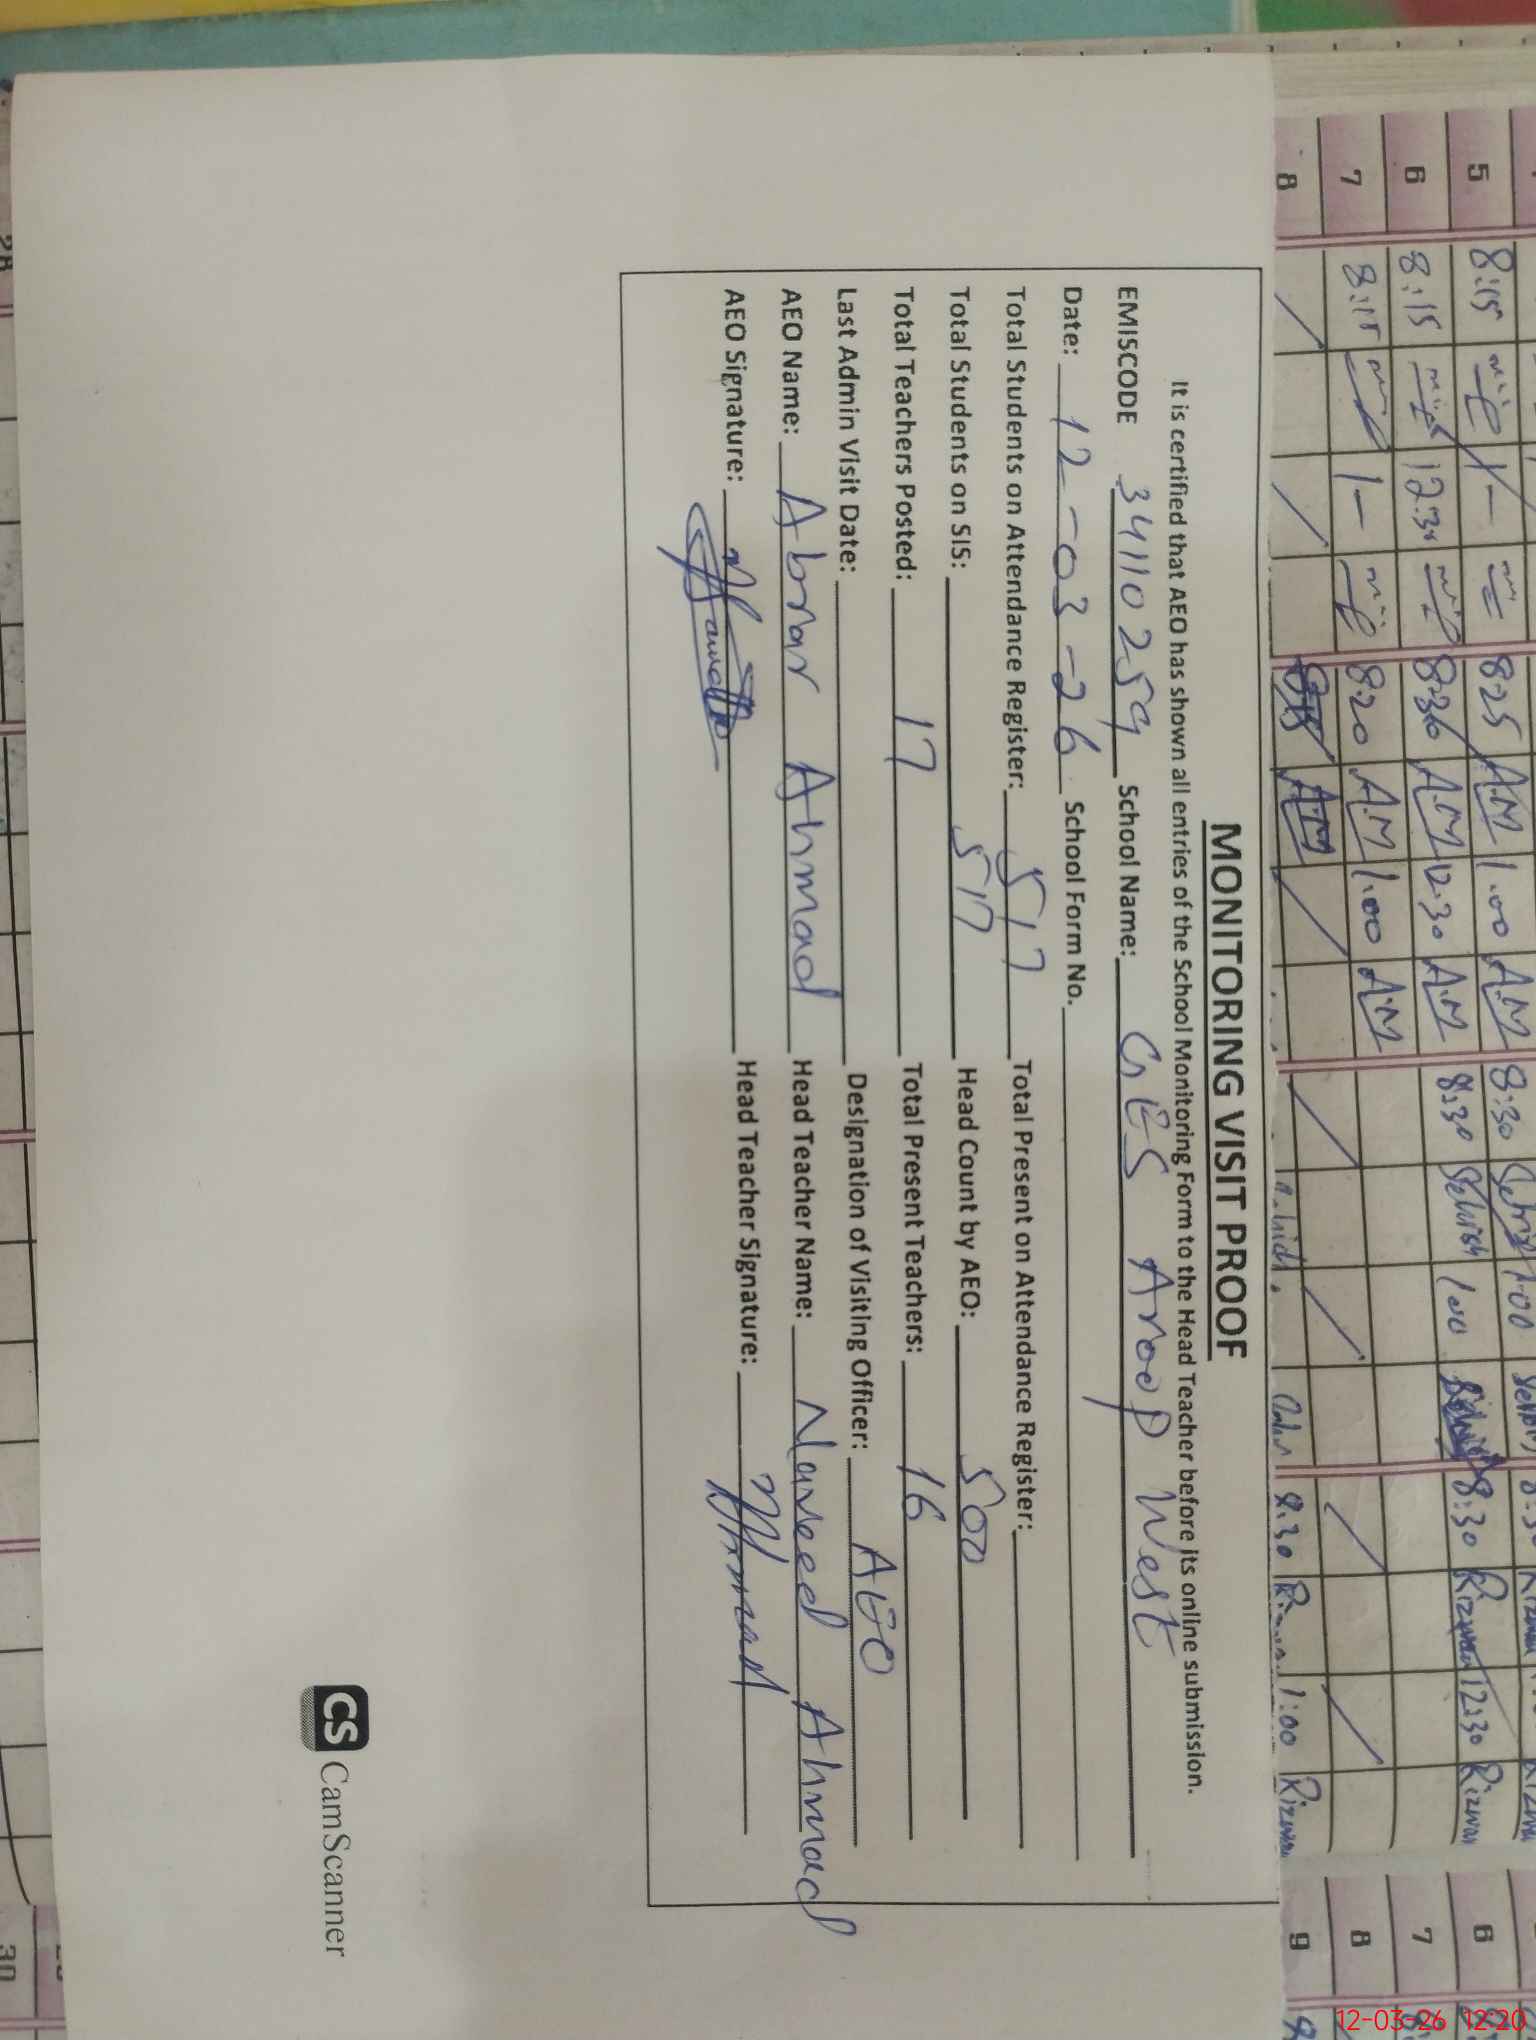 MONITORING VISIT PROOF
It is certified that AEO has shown all entries of the School Monitoring Form to the Head Teacher before its online submission.
EMISCODE 34110259 School Name: GES Aroop West
Date: 12-03-26 School Form No.
Total Students on Attendance Register: 517 Total Present on Attendance Register:
Total Students on SIS: 517 Head Count by AEO: 500
Total Teachers Posted: 17 Total Present Teachers: 16
Last Admin Visit Date: Designation of Visiting Officer: AEO
AEO Name: Abrar Ahmad Head Teacher Name: Naveed Ahmad
AEO Signature: Head Teacher Signature: Ahmad
CS CamScanner
5 8:15 1- 8:25 A.M 1.00 A.M 8:30 1:00 6
6 8:15 12:30 8:30 A.M 12:30 A.M 8:30 Sehrish 1:00 8:30 Rizwan 12:30 Rizwan 7
7 8:15 1- 8:20 A.M 1:00 A.M 8
8 A.M 8:30 1:00 Rizwan 9
28
30
12-03-26 12:20